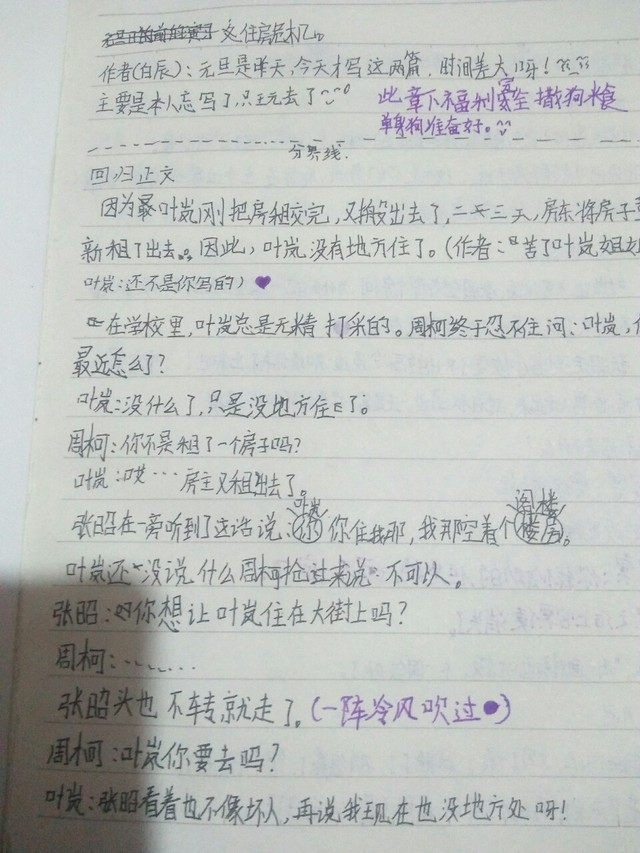 住房危机。
作者(白辰):元旦是昨天,今天才写这两篇,时间差大呀!
主要是本人忘写了,只玩去了
此章下福利完全撒狗粮
单身狗准备好。
分界线.
回归正文
因为最叶岚刚把房租交完,又搬出去了,二天三天,房东将房子重
新租了出去。因此,叶岚没有地方住了。(作者:苦了叶岚姐姐
叶岚:还不是你写的)
在学校里,叶岚总是无精打采的。周柯终于忍不住问:叶岚,你
最近怎么了?
叶岚:没什么了,只是没地方住了。
周柯:你不是租了一个房子吗?
叶岚:哎… 房主又租出去了。
叶岚 阁楼
张昭在一旁听到了这话说: 你住我那,我那空着个楼房。
叶岚还没说什么周柯抢过来说:不可以。
张昭:你想让叶岚住在大街上吗?
周柯:……
张昭头也不转就走了。(一阵冷风吹过)
周柯:叶岚你要去吗?
叶岚:张昭看着也不像坏人,再说我现在也没地方处呀!